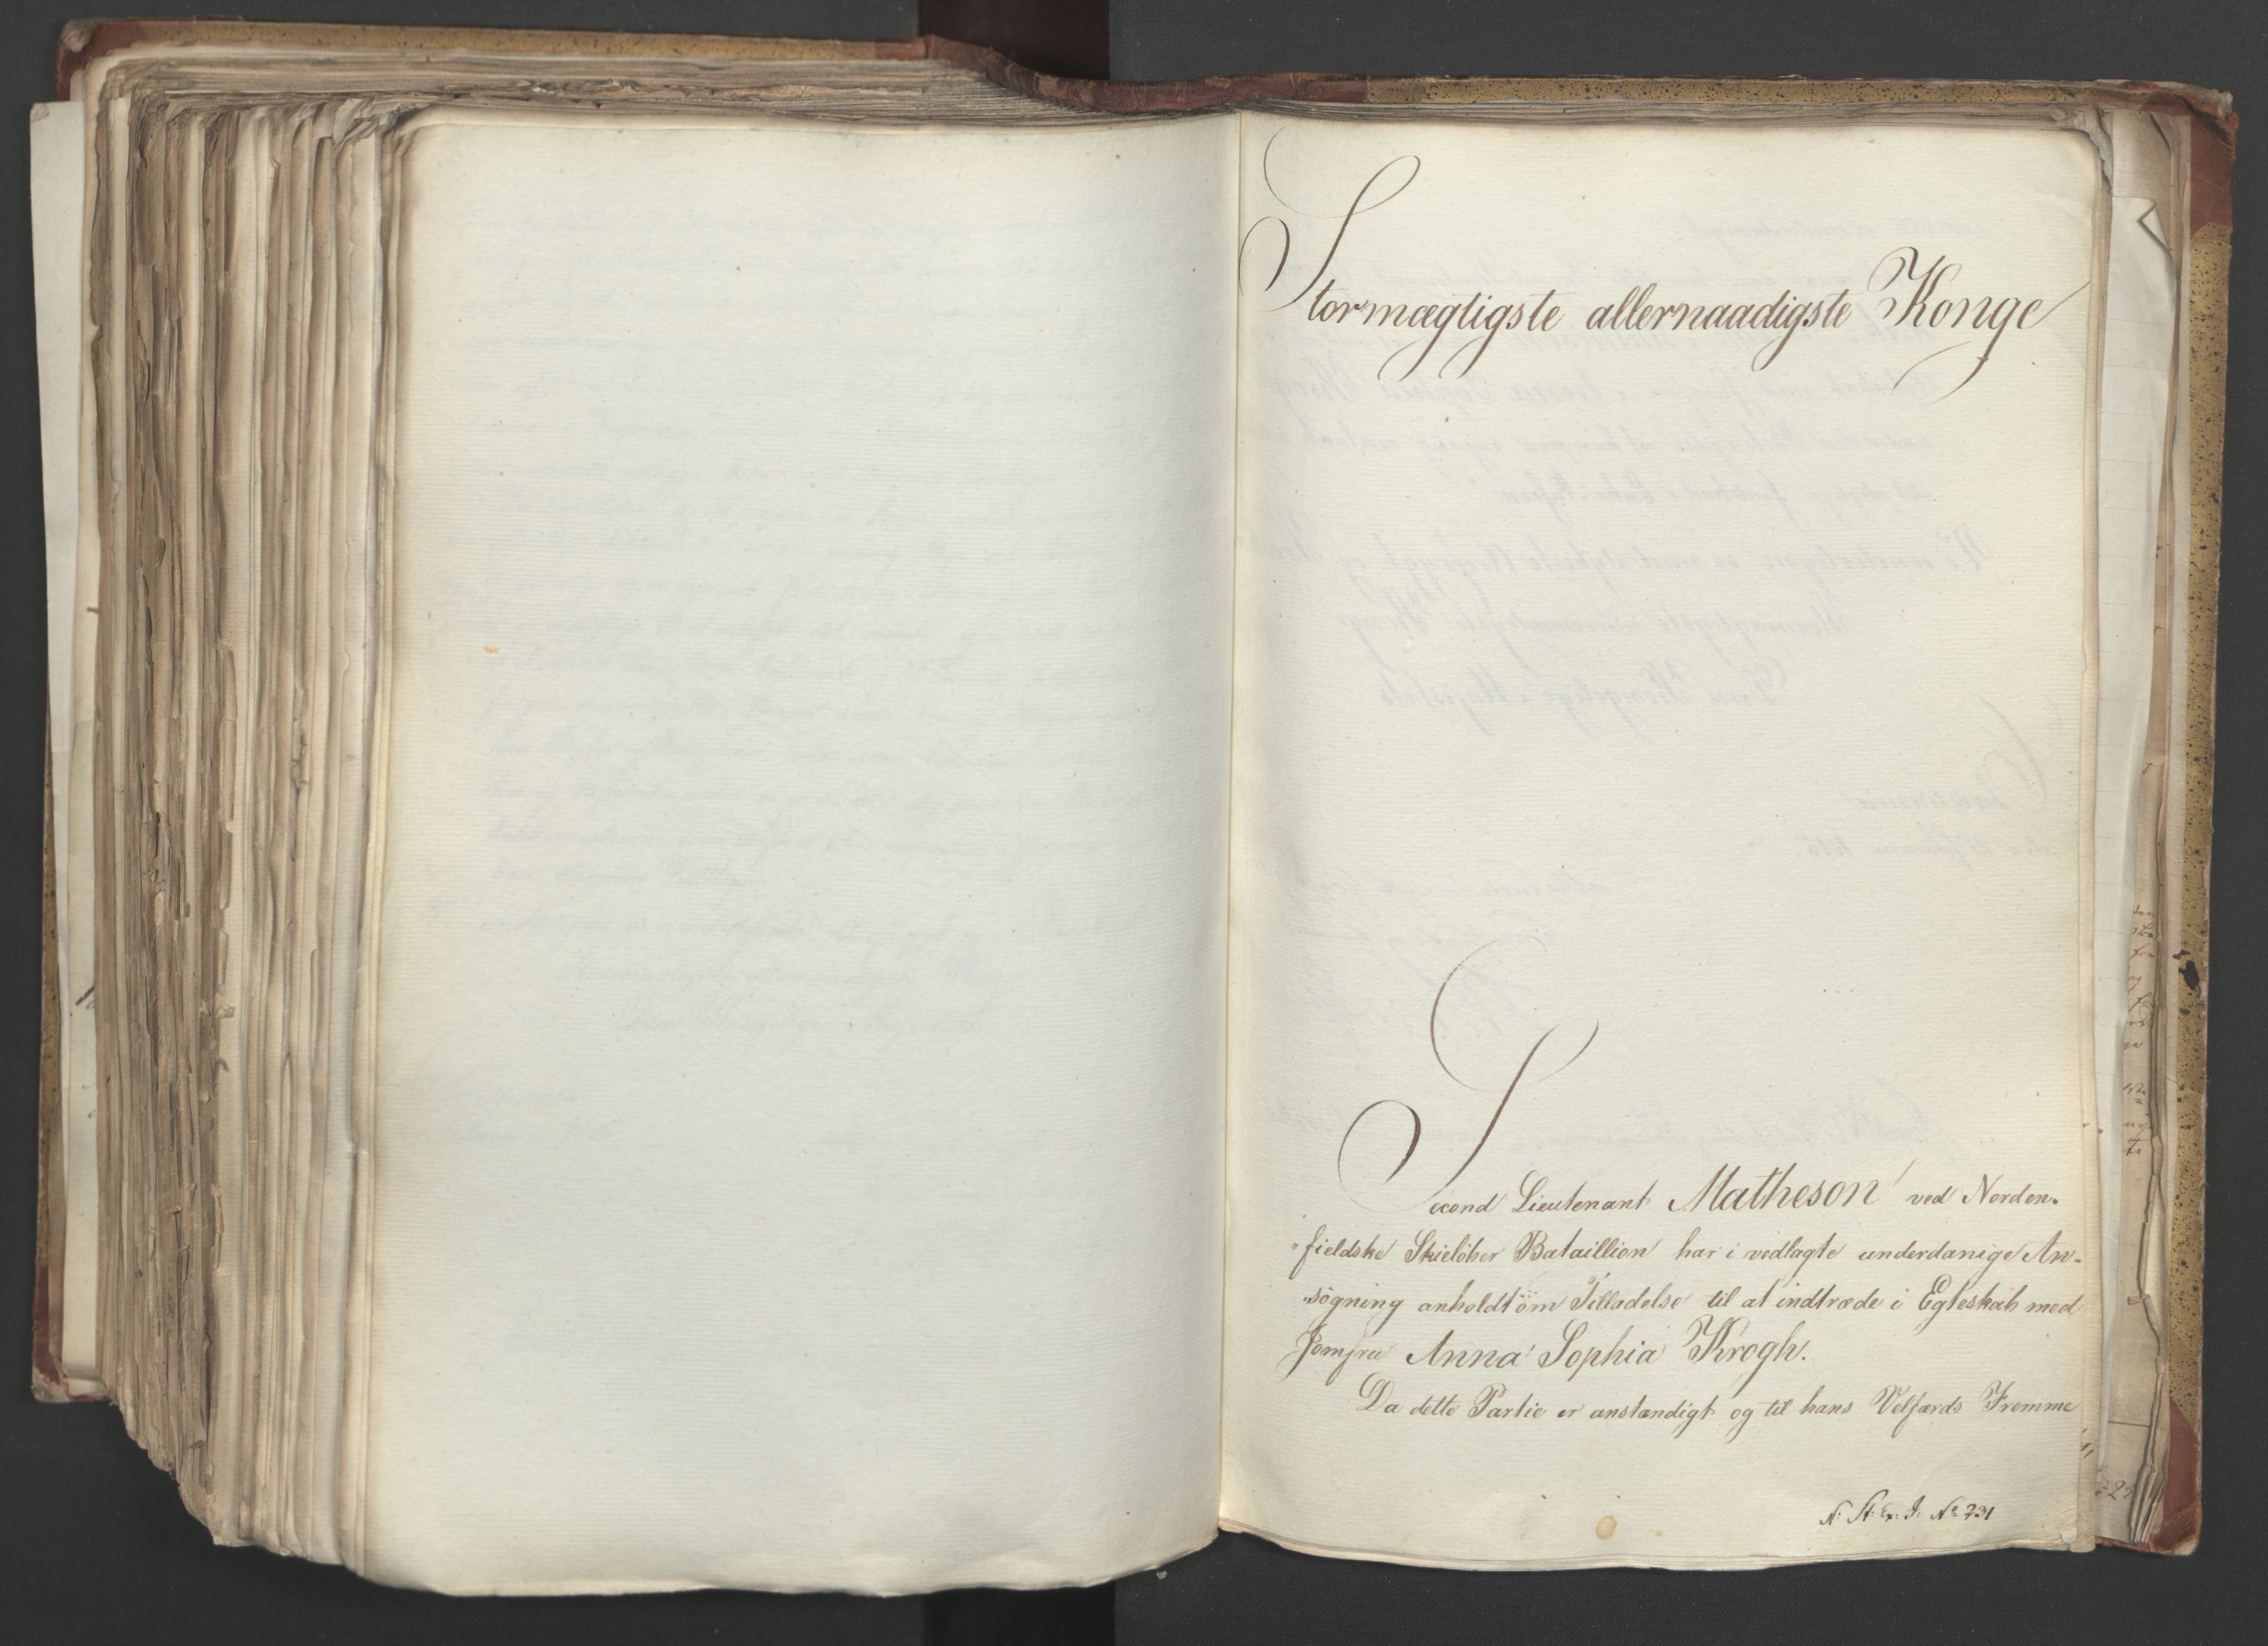 Stormægtigste allernaadigste Konge
Second Lieutenant Matheson ved Norden-
"fieldske Skielöber Bataillion har i vedlagte underdanige An-
"sögning anholdt om Tilladelse til at indtræde i Egteskab med
Jomfru Anna Sophia Krogh.
Da dette Partie er anstændigt og til hans Velfærds Fremme
N. St. Ex. J: No 231